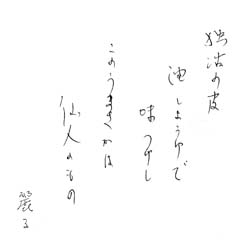 独活の皮
油しようゆで
味つけし
このうま
仙人のもの
麗子